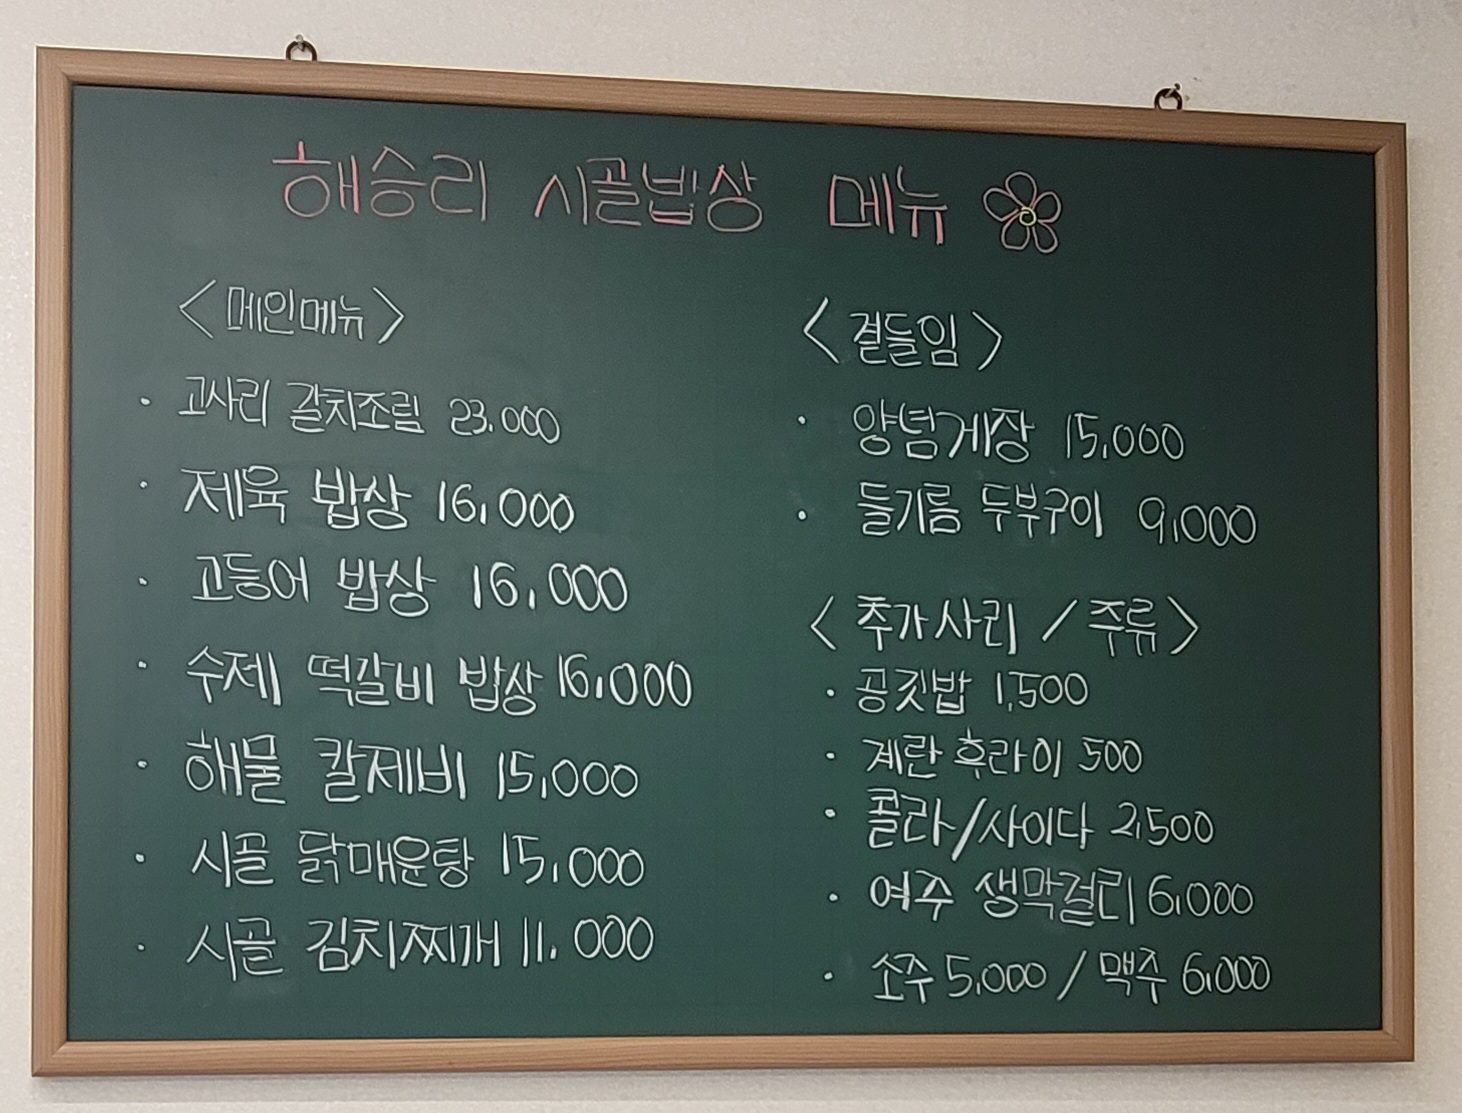 해승리 시골밥상 메뉴
<메인메뉴>
· 고사리 갈치조림 23.000
· 제육 밥상 16,000
· 고등어 밥상 16,000
· 수제 떡갈비 밥상 16,000
· 해물 칼제비 15,000
· 시골 닭매운탕 15,000
· 시골 김치찌개 11,000
<곁들임>
· 양념게장 15,000
· 들기름 두부구이 9,000
<추가사리 / 주류>
· 공깃밥 1,500
· 계란후라이 500
· 콜라/사이다 2,500
· 여주 생막걸리 6,000
· 소주 5,000 / 맥주 6,000